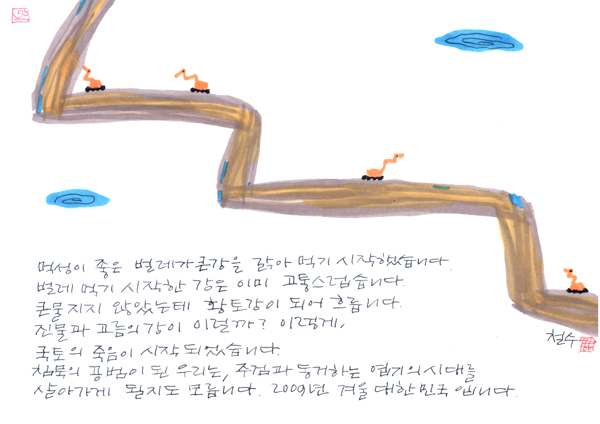 먹성이 좋은 벌레가 큰강을 갉아 먹기 시작했습니다.
벌레 먹기 시작한 강은 이미 고통스럽습니다.
큰물지지 않았는데 황토강이 되어 흐릅니다.
진물과 고름의 강이 이럴까? 이렇게,
국토의 죽음이 시작되었습니다.
침묵의 공범이 된 우리는, 주검과 동거하는 엽기의 시대를
살아가게 될지도 모릅니다. 2009년 겨울 대한민국 입니다.
철수